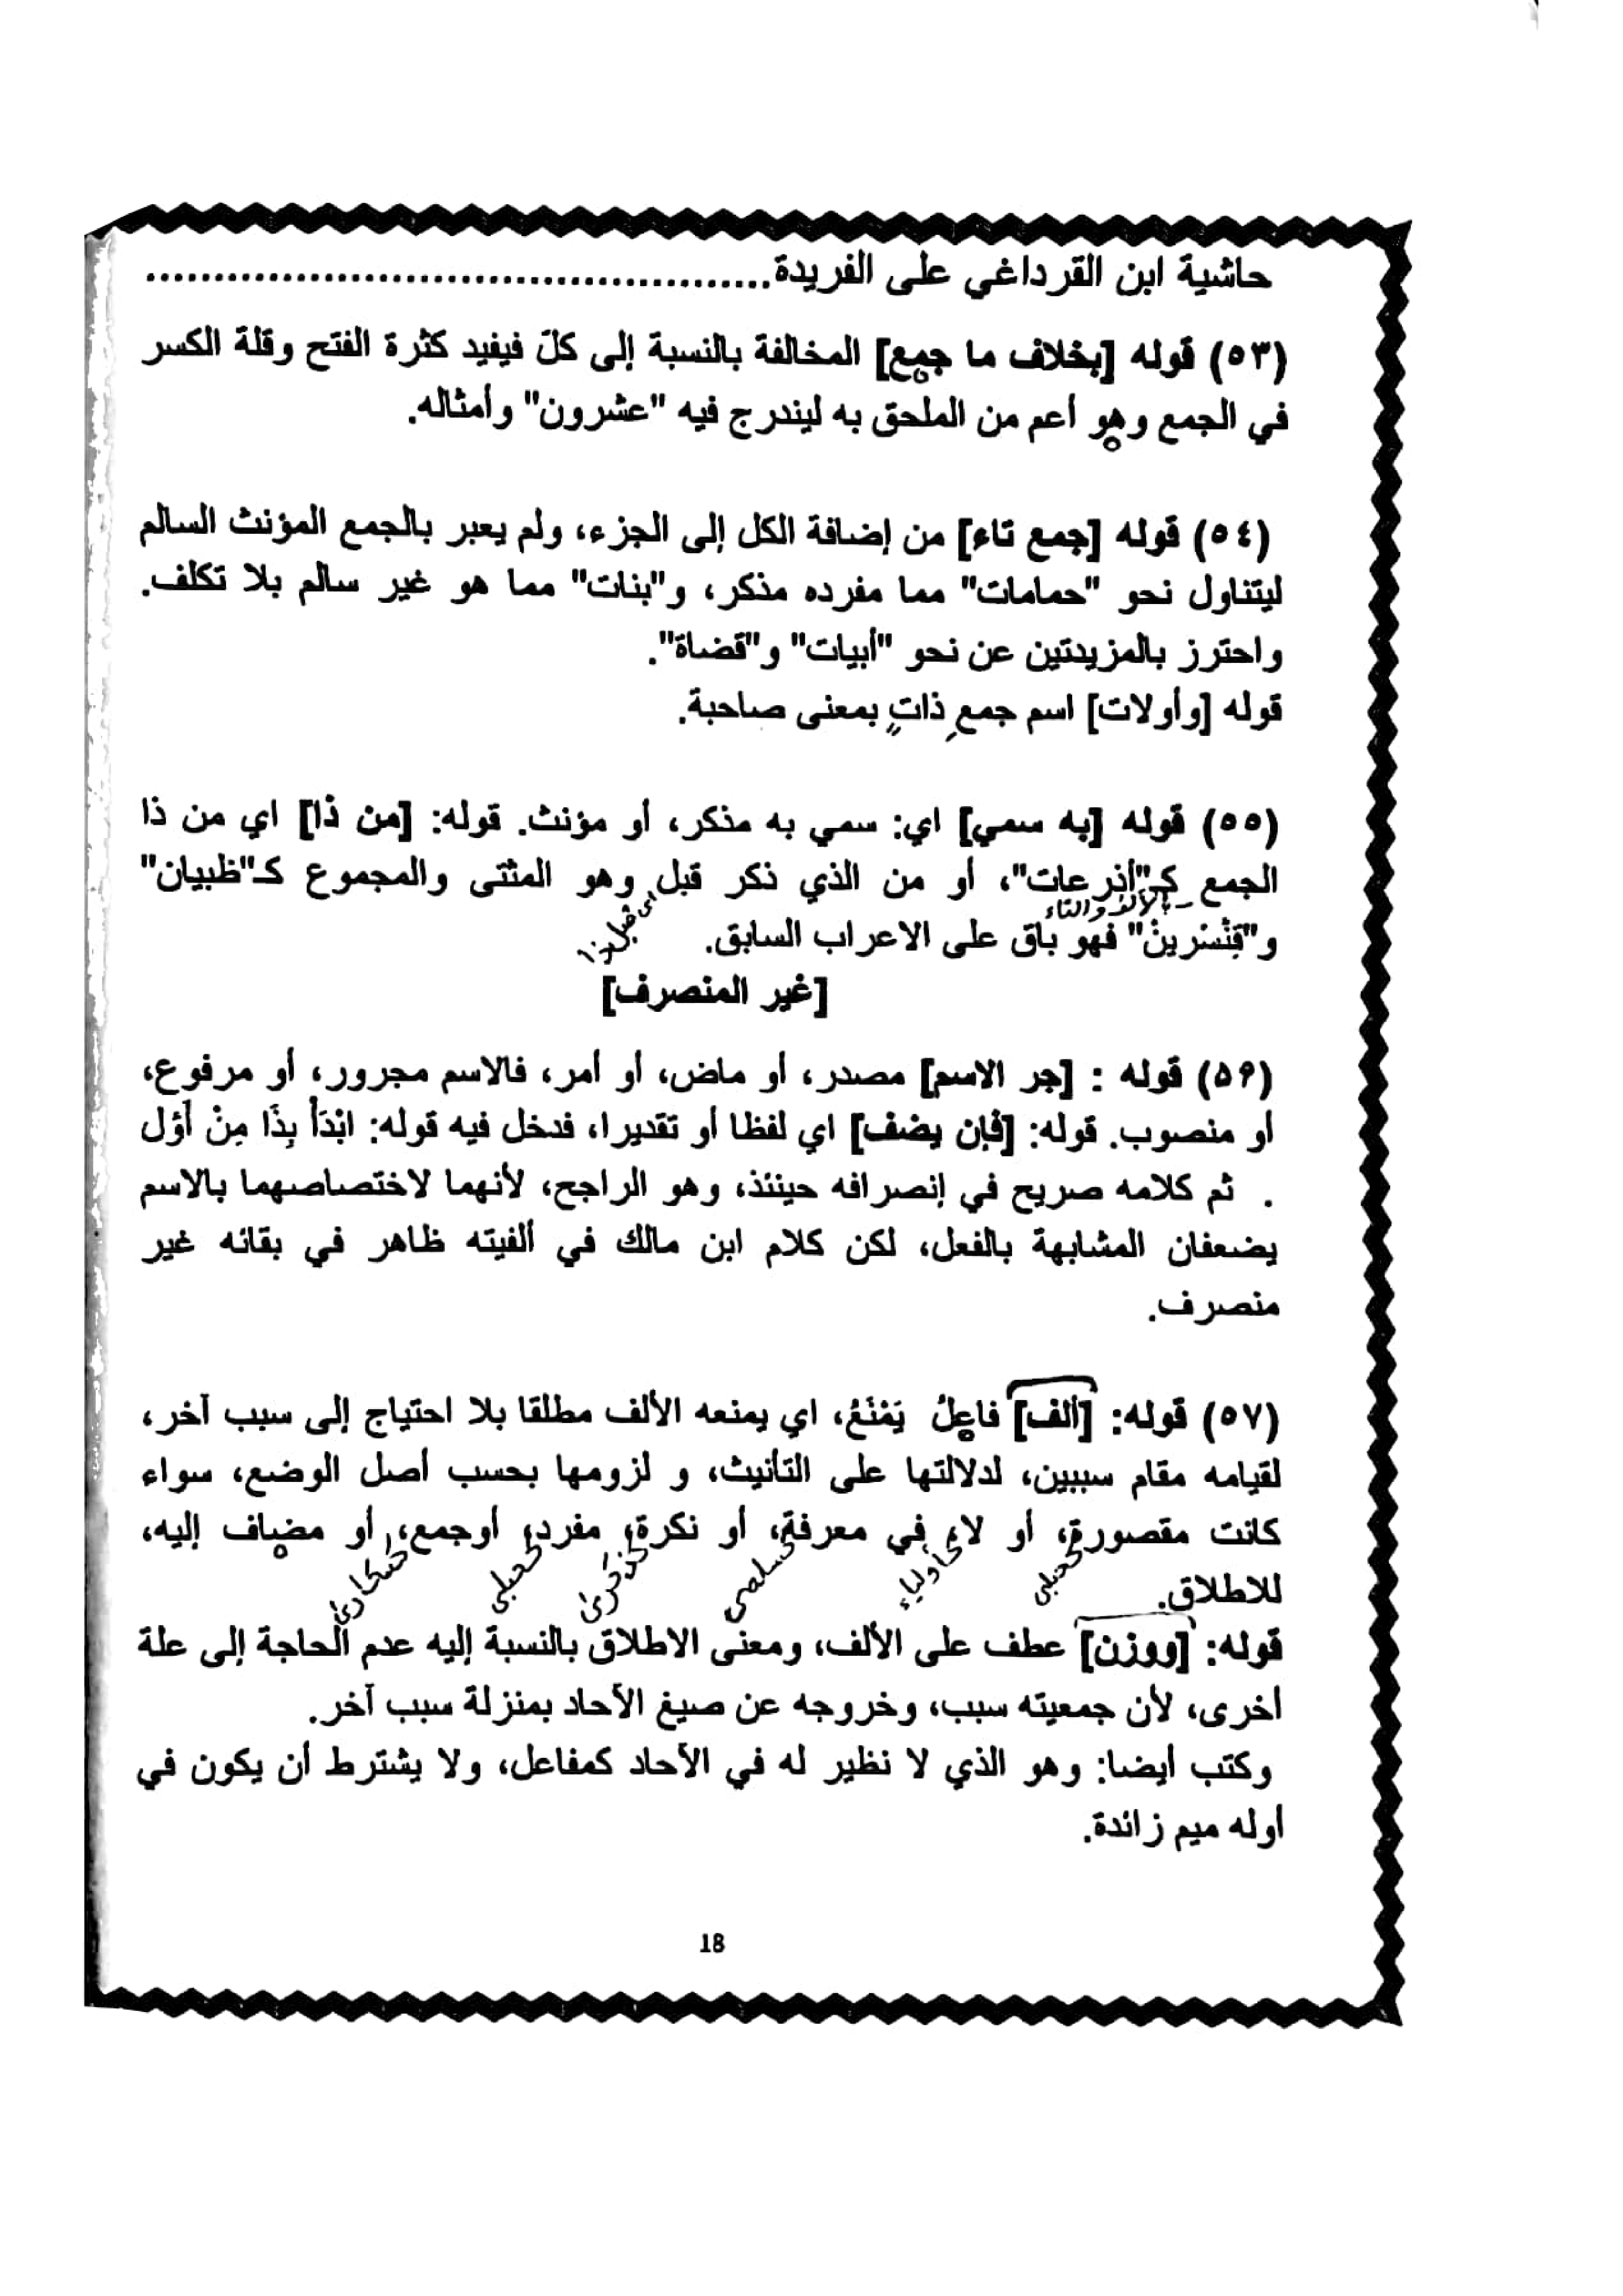 حاشية ابن القرداغي على الفريدة..............................................
(٥٣) قوله [بخلاف ما جمع] المخالفة بالنسبة إلى كلّ فيفيد كثرة الفتح وقلة الكسر
في الجمع وهو أعم من الملحق به ليندرج فيه "عشرون" وأمثاله.
(٥٤) قوله [جمع تاء] من إضافة الكل إلى الجزء، ولم يعبر بالجمع المؤنث السالم
ليتناول نحو "حمامات" مما مفرده مذكر، و"بنات" مما هو غير سالم بلا تكلف.
واحترز بالمزيدتين عن نحو "أبيات" و"قضاة".
قوله [وأولات] اسم جمعِ ذاتٍ بمعنى صاحبة.
(٥٥) قوله [به سمي] اي: سمي به مذكر، أو مؤنث. قوله: [من ذا] اي من ذا
الجمع كـ"أذرعات"، أو من الذي ذكر قبل وهو المثنى والمجموع كـ"ظبيان"
بالالف والتاء
اى قبل هذا
و"قِنَّسْرينْ" فهو باق على الاعراب السابق.
[غير المنصرف]
(٥٦) قوله : [جر الاسم] مصدر، أو ماض، أو أمر، فالاسم مجرور، أو مرفوع،
أو منصوب. قوله: [فإن يضف] اي لفظا أو تقديرا، فدخل فيه قوله: ابْدَأْ بِذَا مِنْ أَوَّل
. ثم كلامه صريح في إنصرافه حينئذ، وهو الراجح، لأنهما لاختصاصهما بالاسم
يضعفان المشابهة بالفعل، لكن كلام ابن مالك في ألفيته ظاهر في بقائه غير
منصرف.
(٥٧) قوله: [ألف] فاعلُ يَمْنَعُ، اي يمنعه الألف مطلقا بلا احتياج إلى سبب آخر،
لقيامه مقام سببين، لدلالتها على التأنيث، و لزومها بحسب أصل الوضع، سواء
كانت مقصورة، أو لا، في معرفة، أو نكرة، مفرد، أوجمع، أو مضاف إليه،
كحبلى كأولياء كسلمى كذكرى كحبلى كسكارى
للاطلاق.
قوله: [ووزن] عطف على الألف، ومعنى الاطلاق بالنسبة إليه عدم الحاجة إلى علة
أخرى، لأن جمعيته سبب، وخروجه عن صيغ الآحاد بمنزلة سبب آخر.
وكتب أيضا: وهو الذي لا نظير له في الآحاد كمفاعل، ولا يشترط أن يكون في
أوله ميم زائدة.
18